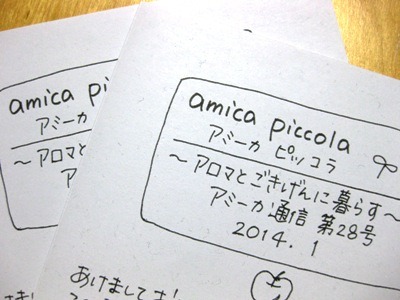 amica pi
アミーカ
〜アロマと
ア
amica piccola
アミーカ ピッコラ
〜アロマとごきげんに暮らす〜
アミーカ通信 第28号
2014.1
あけまして